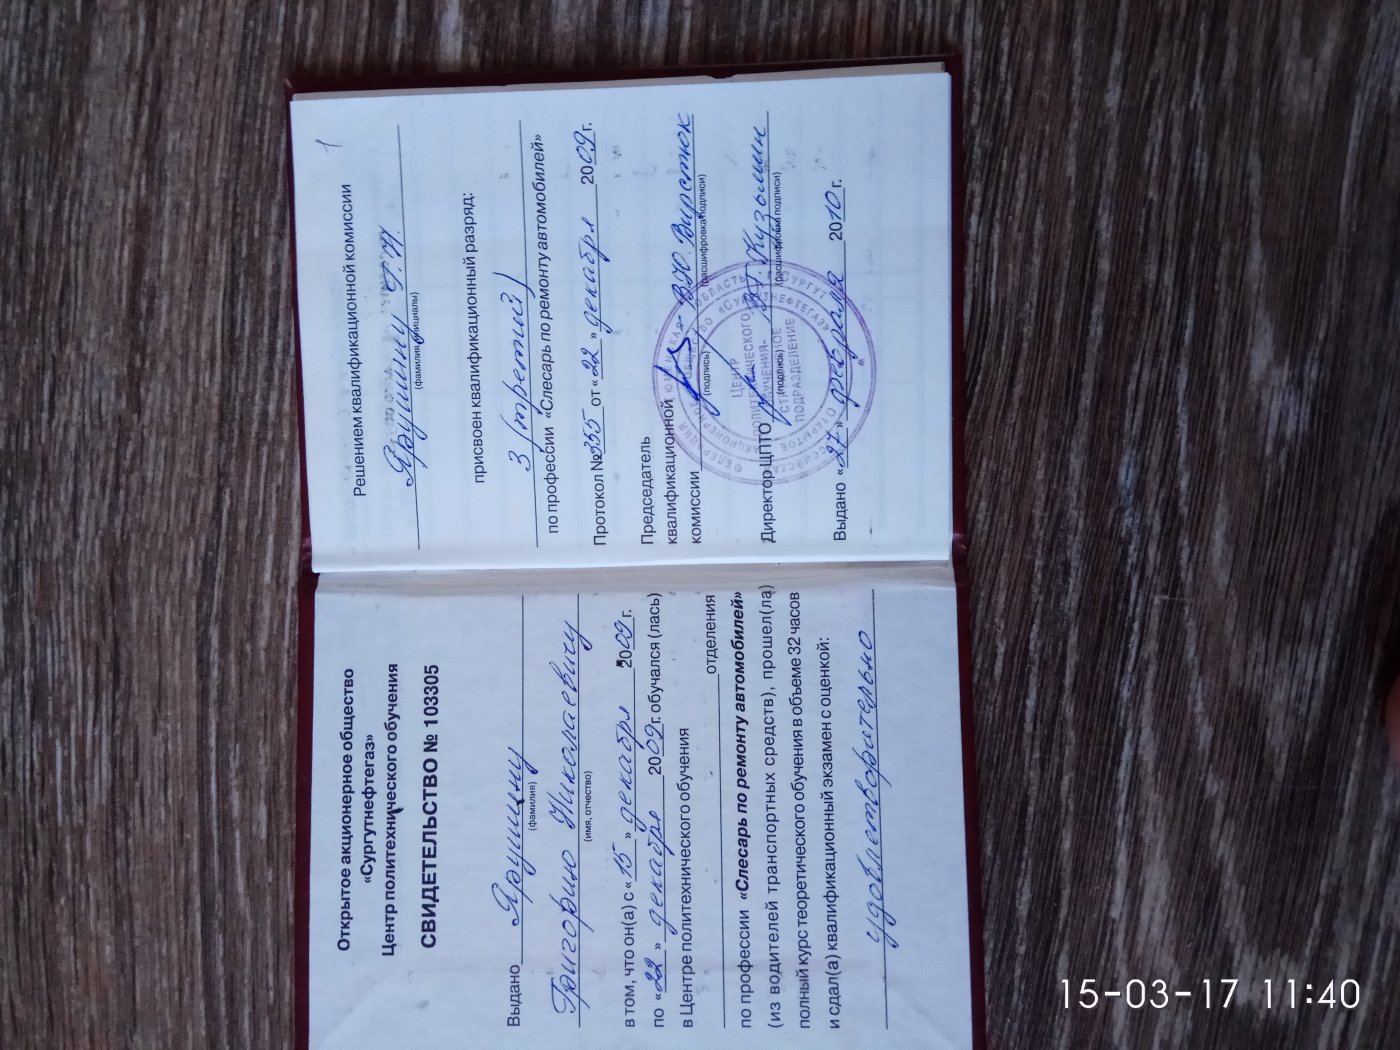 Открытое акционерное общество
«Сургутнефтегаз»
Центр политехнического обучения
СВИДЕТЕЛЬСТВО № 103305
Выдано Ярушину
(фамилия)
Григорию Николаевичу
(имя, отчество)
в том, что он(а) с «15» декабря 2009 г.
по «22» декабря 2009 г. обучался (лась)
в Центре политехнического обучения
отделения
по профессии «Слесарь по ремонту автомобилей»
(из водителей транспортных средств), прошел(ла)
полный курс теоретического обучения в объеме 32 часов
и сдал(а) квалификационный экзамен с оценкой:
удовлетворительно
1
Решением квалификационной комиссии
Ярушину Г.Н.
(фамилия, инициалы)
присвоен квалификационный разряд:
3 (третий)
по профессии «Слесарь по ремонту автомобилей»
Протокол № 355 от «22» декабря 2009 г.
Председатель
квалификационной
комиссии В.Ю. Вирстюк
(подпись) (расшифровка подписи)
Директор ЦПТО В.Г. Кузьмин
(подпись) (расшифровка подписи)
Выдано «27» февраля 2010 г.
ЦЕНТР
ПОЛИТЕХНИЧЕСКОГО
ОБУЧЕНИЯ-
СТРУКТУРНОЕ
ПОДРАЗДЕЛЕНИЕ
15-03-17 11:40